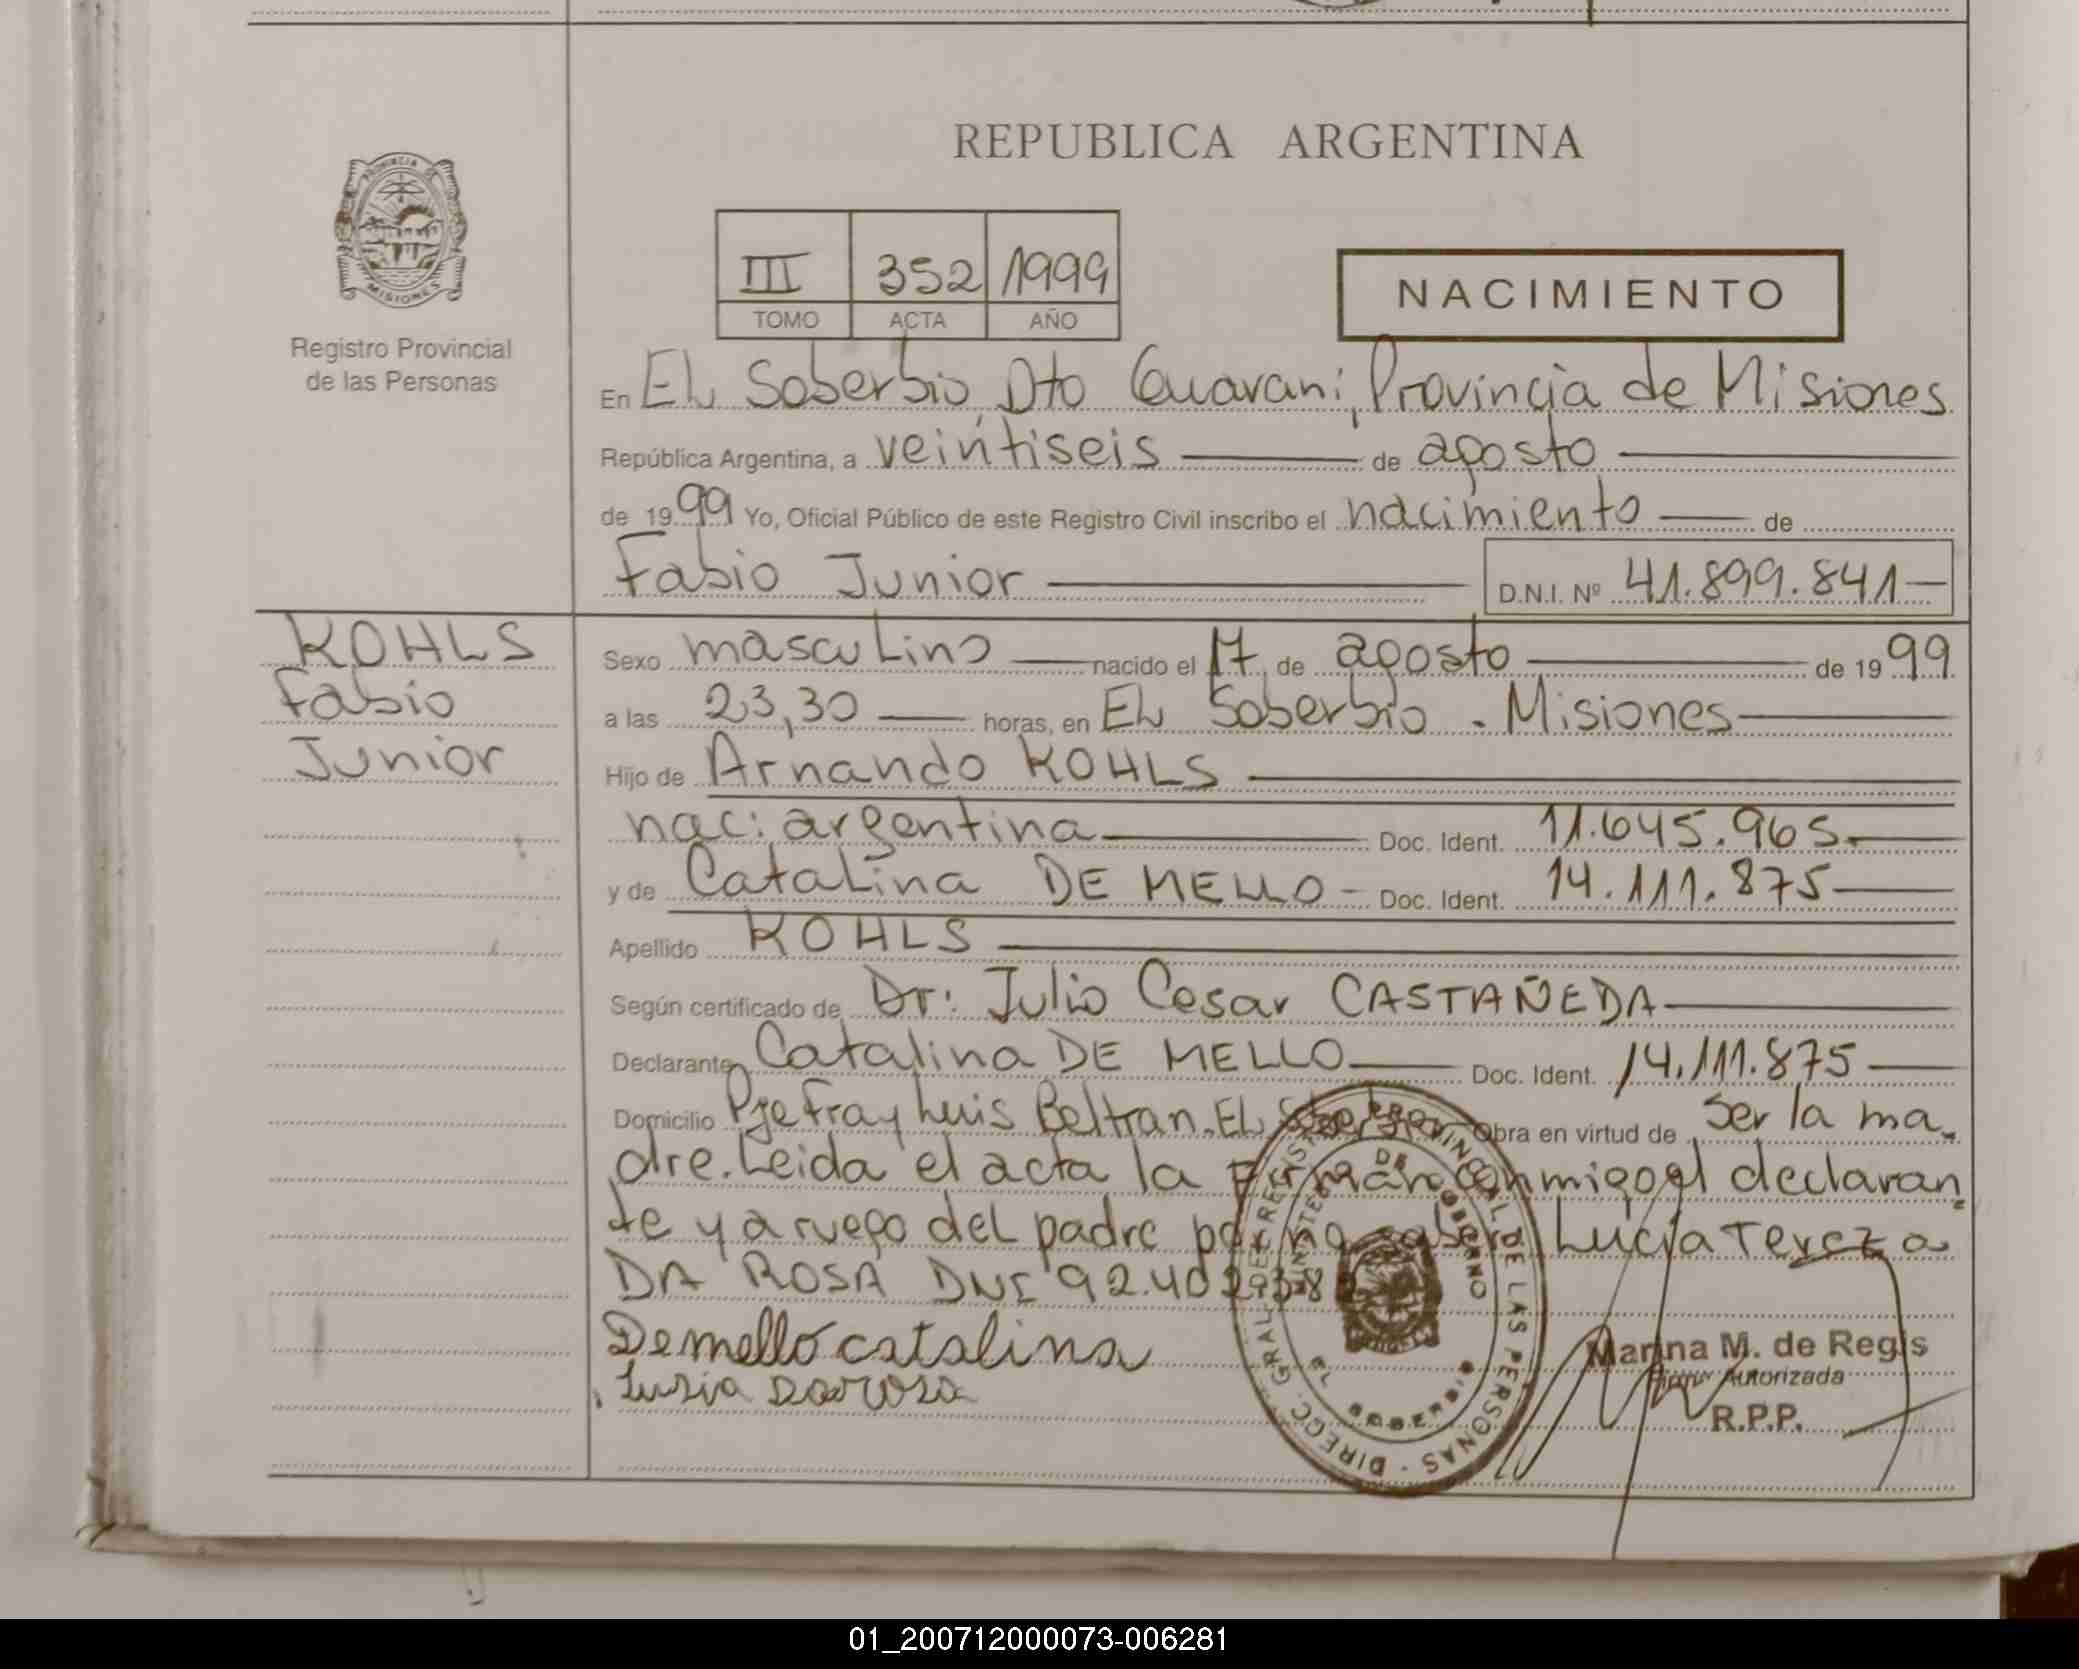 REPUBLICA ARGENTINA
PROVINCIA DE
MISIONES
Registro Provincial
de las Personas
III 352 1999
TOMO ACTA AÑO
NACIMIENTO
En EL Soberbio, Dto Guarani, Provincia de Misiones
República Argentina, a veintiseis de agosto
de 1999 Yo, Oficial Público de este Registro Civil inscribo el nacimiento de
Fabio Junior D.N.I. Nº 41.899.841
KOHLS
Fabio
Junior
Sexo masculino nacido el 17 de agosto de 1999
a las 23,30 horas, en EL Soberbio - Misiones
Hijo de Arnando KOHLS
nac: argentina Doc. Ident. 11.645.965
y de Catalina DE MELLO Doc. Ident. 14.111.875
Apellido KOHLS
Según certificado de Dr: Julio Cesar CASTAÑEDA
Declarante Catalina DE MELLO Doc. Ident. 14.111.875
Domicilio Pje Fray Luis Beltran - EL Soberbio Obra en virtud de ser la ma-
dre. Leida el acta la firman conmigo el declaran-
te y a ruego del padre por no saber Lucia Tereza
DA ROSA DNI 92.402.38
Demello catalina
Lusia Darosa
DIRECC. GRAL. DE REGISTRO PROVINCIAL DE LAS PERSONAS
MINISTERIO DE GOBIERNO
EL SOBERBIO
Marina M. de Regis
Firma Autorizada
R.P.P.
01_200712000073-006281